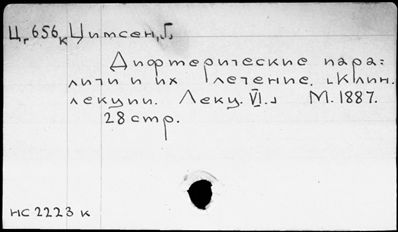 Цг 656к Цимсен, Г.
Дифтерические пара=
личи и их лечение. [Клин.
лекции. Лекц. VI.] М. 1887.
28 стр.
нс 2223 к